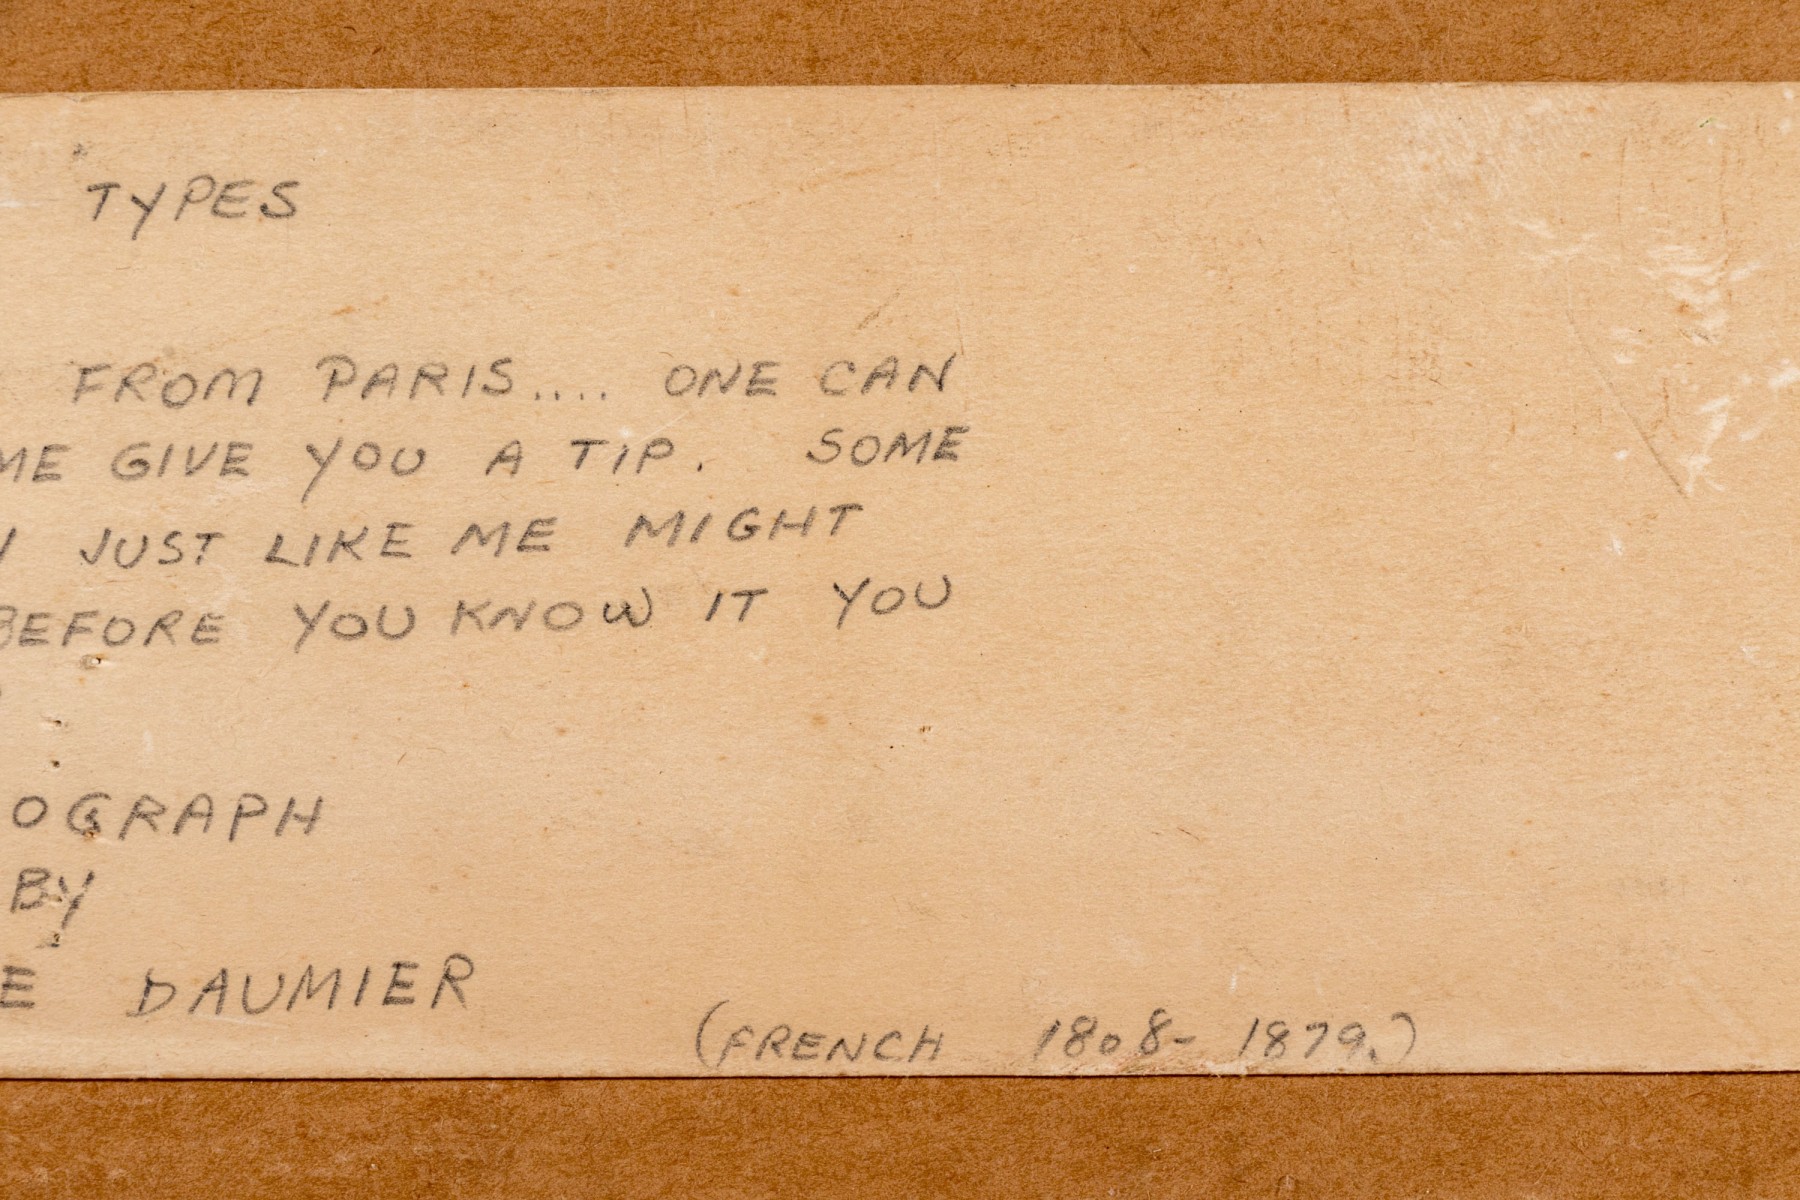 TYPES
FROM PARIS.... ONE CAN
ME GIVE YOU A TIP. SOME
JUST LIKE ME MIGHT
BEFORE YOU KNOW IT YOU
OGRAPH
BY
E DAUMIER
(FRENCH 1808-1879.)